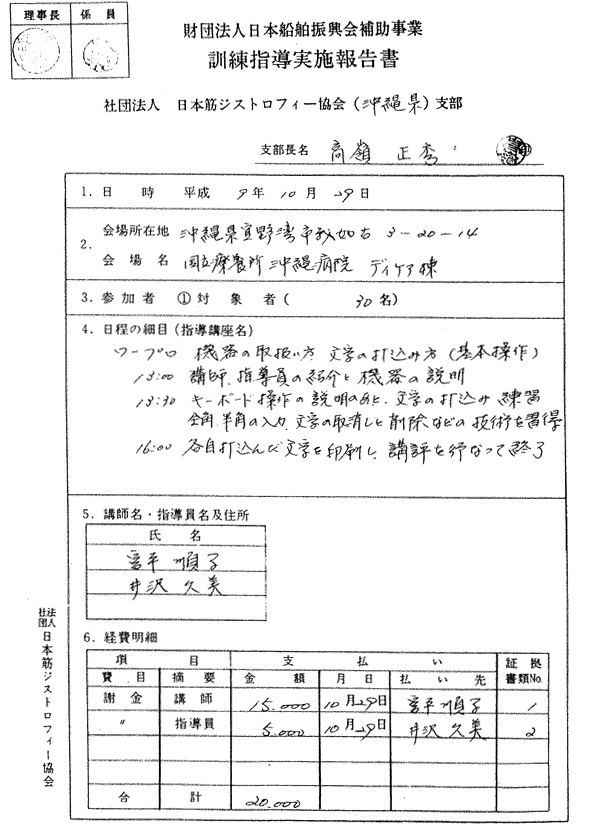 理事長 係員
財団法人日本船舶振興会補助事業
訓練指導実施報告書
社団法人 日本筋ジストロフィー協会(沖縄県)支部
支部長名 高嶺 正秀
1.日 時 平成 9年 10月 29日
2.
会場所在地 沖縄県宜野湾市我如古 3-20-14
会 場 名 国立療養所沖縄病院 デイケア棟
3.参加者 ①対 象 者( 30名)
4.日程の細目(指導講座名)
ワープロ 機器の取扱い方 文字の打込み方(基本操作)
13:00 講師、指導員の紹介と機器の説明
13:30 キーボード操作の説明のあと、文字の打込み練習
全角、半角の入力、文字の取消しと削除などの技術を習得
16:00 各自打込んだ文字を印刷し、講評を行なって終了
5.講師名・指導員名及住所
氏 名
宮平 順子
井沢 久美
6.経費明細
項 目 支 払 い 証 拠
費 目 摘 要 金 額 月 日 払 い 先 書類No.
謝 金 講 師 15.000 10月29日 宮平 順子 1
〃 指導員 5.000 10月29日 井沢 久美 2
合 計 20.000
社団法人 日本筋ジストロフィー協会